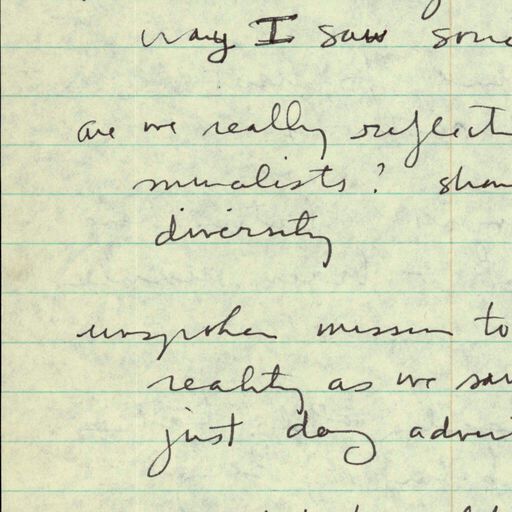 way I saw some
are we really reflect
muralists? shou
diversity
unspoken mission to
reality as we saw
just doing adver